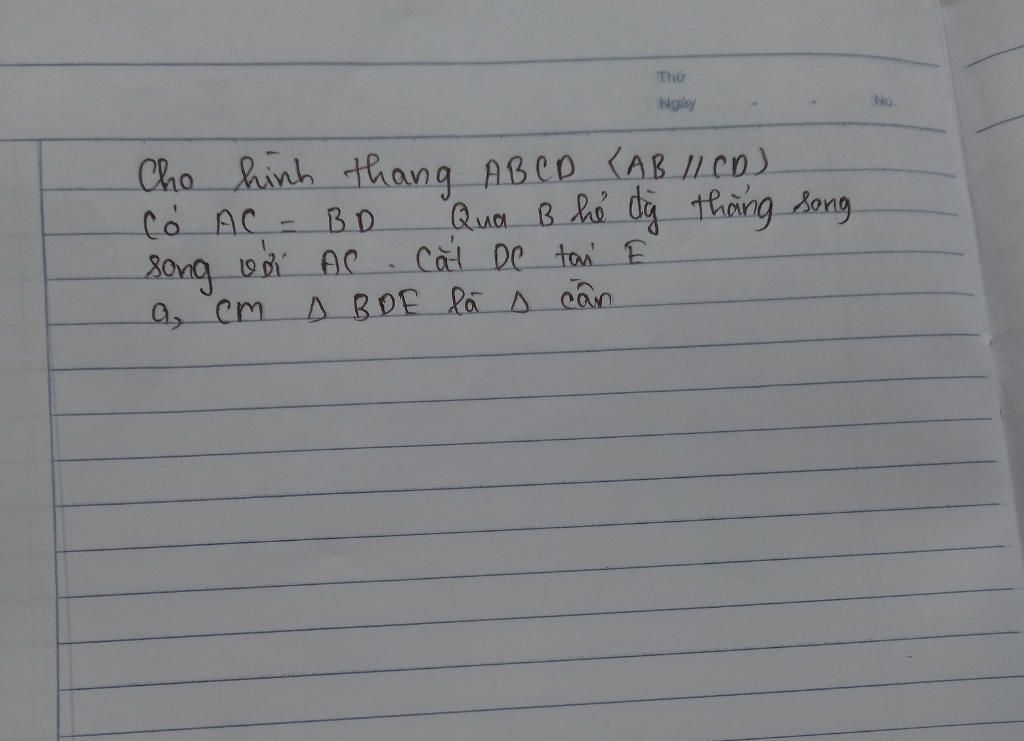 Thứ
Ngày . . No.
Cho hình thang ABCD (AB // CD)
Có AC = BD Qua B kẻ đg thẳng song
song với AC . Cắt DC tại E
a, CM Δ BDE là Δ cân